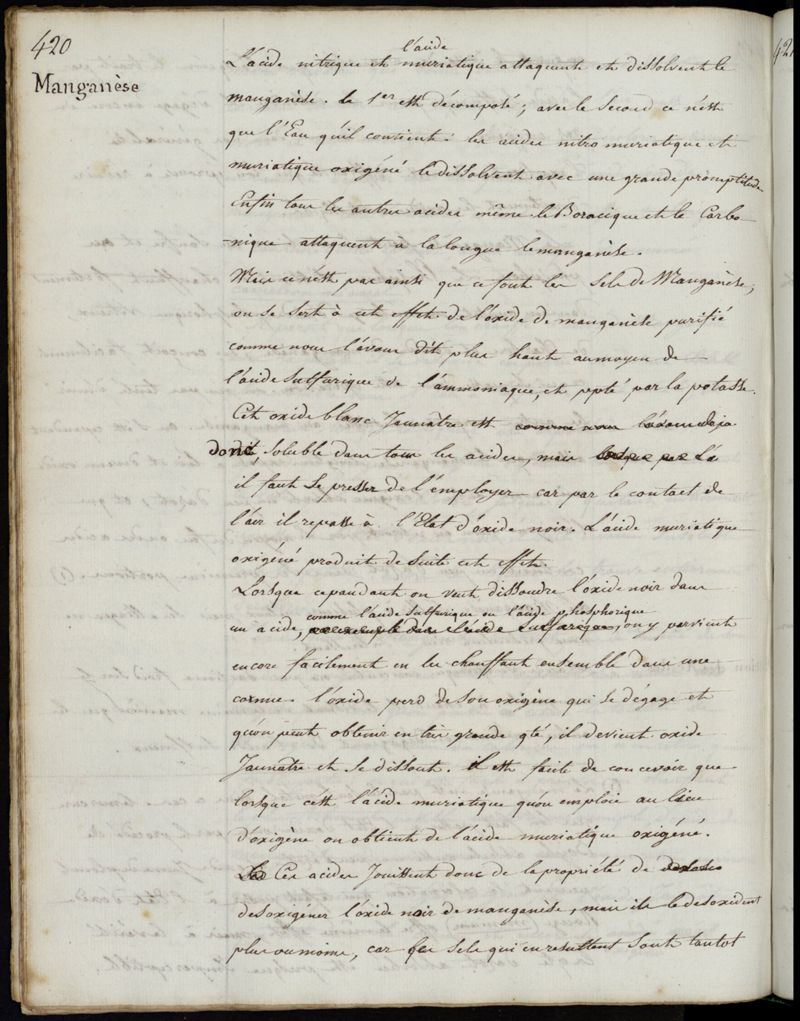 420
Manganèse
l'acide
L'acide nitrique et muriatique attaquent et dissolvent le
manganèse. le 1er est décomposé; avec le second ce n'est
que l'Eau qu'il contient. les acides nitro muriatique et
muriatique oxigéné le dissolvent avec une grande promptitude
Enfin tous les autres acides même le Boracique et le Carbo-
-nique attaquent à la longue le manganèse.
Mais ce n'est pas ainsi que ce font les Sels de Manganèse,
on se sert à cet effet de l'oxide de manganèse purifié
comme nous l'avons dit plus haut au moyen de
l'acide Sulfurique de l'ammoniaque, et ppté par la potasse.
Cet oxide blanc Jaunâtre est comme nous l'avons deja
dit, donc soluble dans tous les acides, mais
il faut se presser de l'employer car par le contact de
l'air il repasse à l'Etat d'oxide noir. L'acide muriatique
oxigéné produit de suite cet effet.
Lorsque cependant on veut dissoudre l'oxide noir dans
comme l'acide Sulfurique ou l'acide phosphorique
un acide, par exemple dans l'acide Sulfurique, on y parvient
encore facilement en les chauffant ensemble dans une
cornue. l'oxide perd de son oxigène qui se dégage et
qu'on peut obtenir en très grande qté, il devient oxide
Jaunâtre et se dissout. il est facile de concevoir que
lorsque c'est l'acide muriatique qu'on emploie au lieu
d'oxigène on obtient de l'acide muriatique oxigéné.
Les Ces acides Jouissent donc de la propriété de
desoxigéner l'oxide noir de manganèse, mais ils le desoxident
plus ou moins, car les sels qui en resultent sont tantot